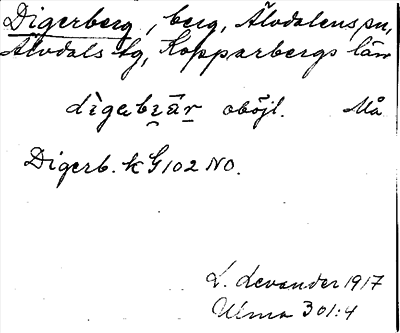 Digerberg, berg, Älvdalens sn,
Älvdals tg, Kopparbergs län
dìgabi̯är oböjl. Må
Digerb. k G 102 NO.
L. Levander 1917
Ulma 301:4